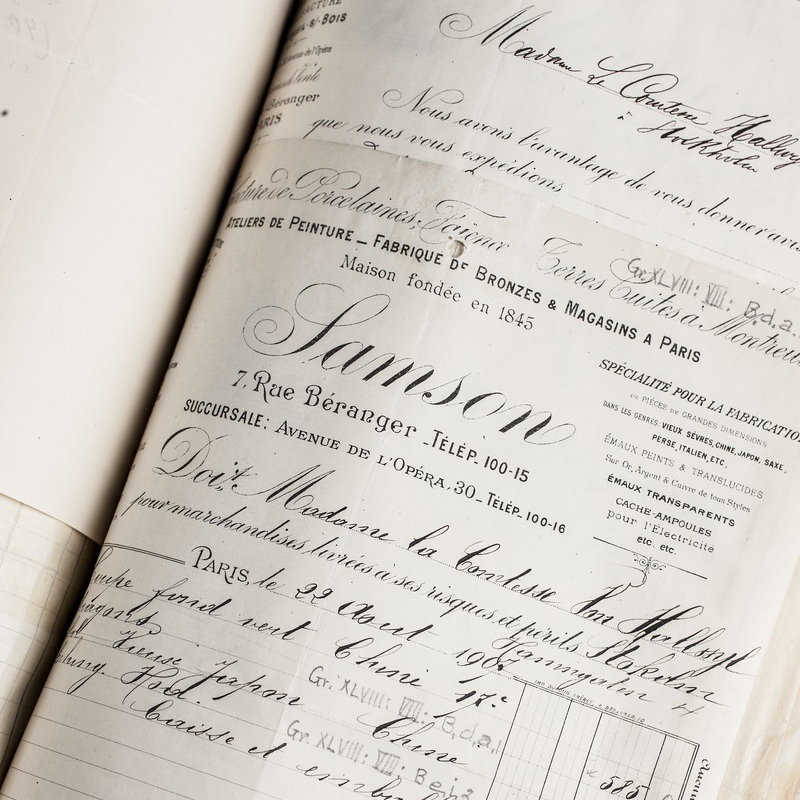 ACTURE
-s/-BOIS
de l'Opéra
Vente
Béranger
ARIS
Madame La Comtesse Hallwy
à Stockholm
Nous avons l'avantage de vous donner avis
que nous vous expédions
de Porcelaines, Faïence Terres Cuites à Montreu
ATELIERS DE PEINTURE _ FABRIQUE DE BRONZES & MAGASINS A PARIS
Gr: XLVIII: VIII: B.d.a.
Maison fondée en 1845
Samson
7, Rue Béranger _ TÉLÉP. 100-15
SUCCURSALE: AVENUE DE L'OPÉRA, 30 _ TÉLÉP. 100-16
SPÉCIALITÉ POUR LA FABRICATION
DE PIÈCES DE GRANDES DIMENSIONS
DANS LES GENRES: VIEUX SÈVRES, CHINE, JAPON, SAXE,
PERSE, ITALIEN, ETC,
ÉMAUX PEINTS & TRANSLUCIDES
Sur Or, Argent & Cuivre de tous Styles
ÉMAUX TRANSPARENTS
CACHE-AMPOULES
pour l'Électricité
etc. etc.
Doit Madame la Comtesse Von Hallwyl
pour marchandises livrées à ses risques et périls Stokolm
PARIS, le 22 Aout 1907 Hamngatan 4
oupe fond vert Chine 17.e
Gr: XLVIII: VIII: B.d.a.
Japon Chine
Gr: XLVIII: VIII: B
Caisse et
585